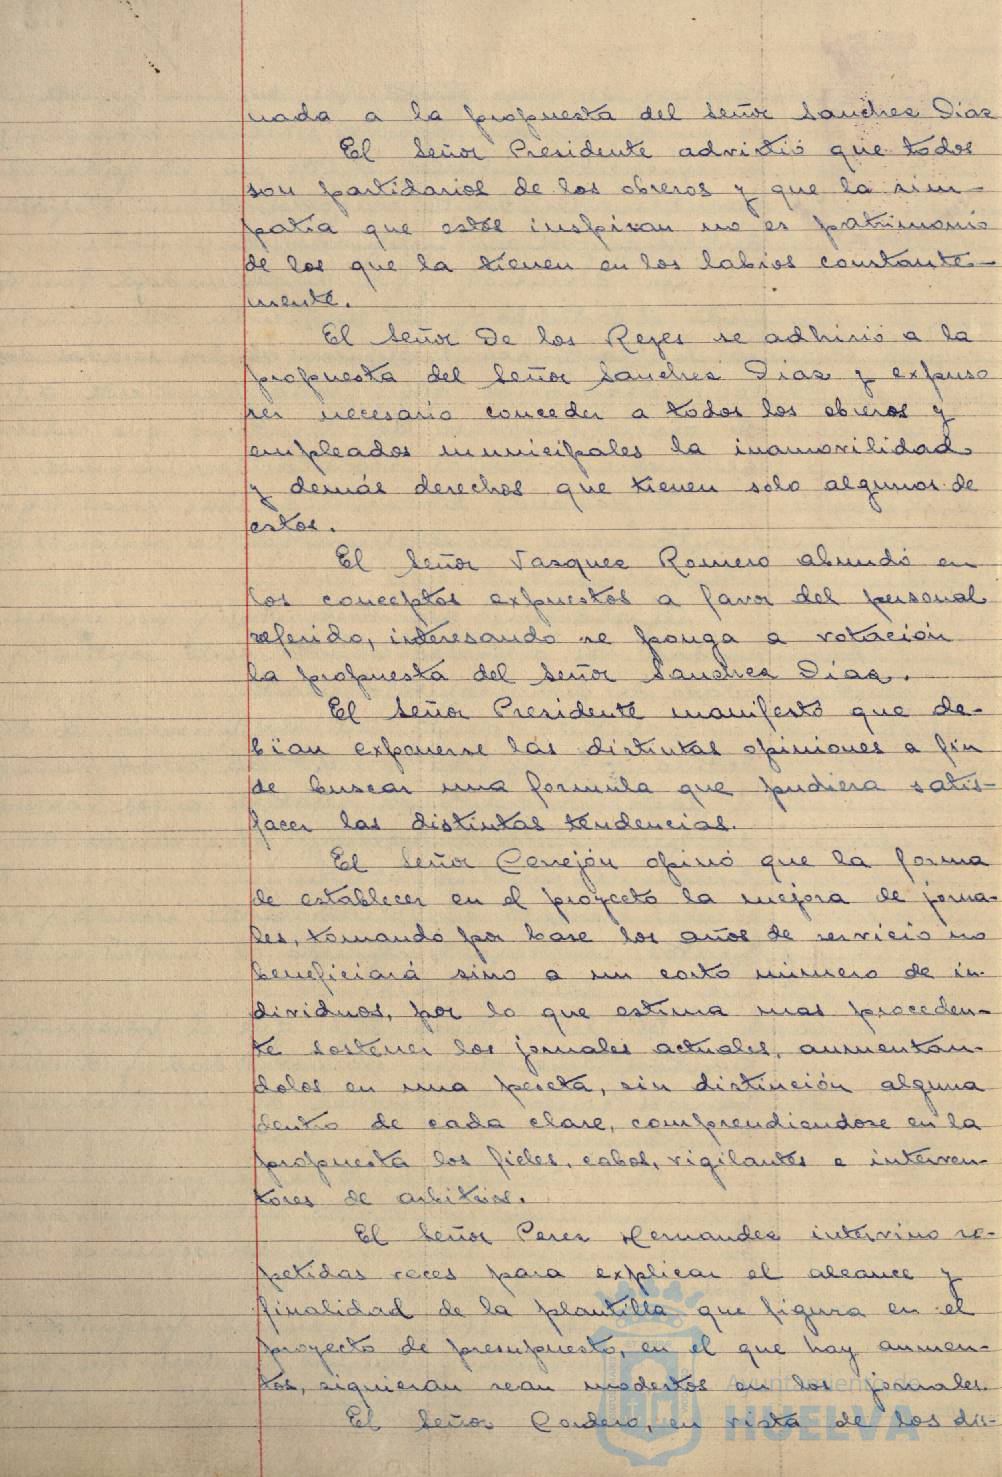 nada a la propuesta del Señor Sanchez Díaz
El Señor Presidente advirtió que todos
son partidarios de los obreros y que la sim-
patía que estos inspiran no es patrimonio
de los que la tienen en los labios constante-
mente.
El Señor De los Reyes se adhirió a la
propuesta del Señor Sanchez Díaz y expuso
ser necesario conceder a todos los obreros y
empleados municipales la inamovilidad
y demás derechos que tienen solo algunos de
estos.
El Señor Vazquez Romero abundó en
los conceptos expuestos a favor del personal
referido, interesando se ponga a votación
la propuesta del Señor Sanchez Díaz.
El Señor Presidente manifestó que de-
bían exponerse las distintas opiniones a fin
de buscar una formula que pudiera satis-
facer las distintas tendencias.
El Señor Cerrejón opinó que la forma
de establecer en el proyecto la mejora de jorna-
les, tomando por base los años de servicio no
beneficiará sino a un corto número de in-
dividuos, por lo que estima mas proceden-
te sostener los jornales actuales, aumentan-
dolos en una peseta, sin distinción alguna
dentro de cada clase, comprendiendose en la
propuesta los fieles, cabos, vigilantes e interven-
tores de arbitrios.
El Señor Perez Hernandez intervino re-
petidas veces para explicar el alcance y
finalidad de la plantilla que figura en el
proyecto de presupuesto, en el que hay aumen-
tos, siquieran sean modestos en los jornales.
El Señor Cordero, en vista de los dis-
Ayuntamiento de
HUELVA